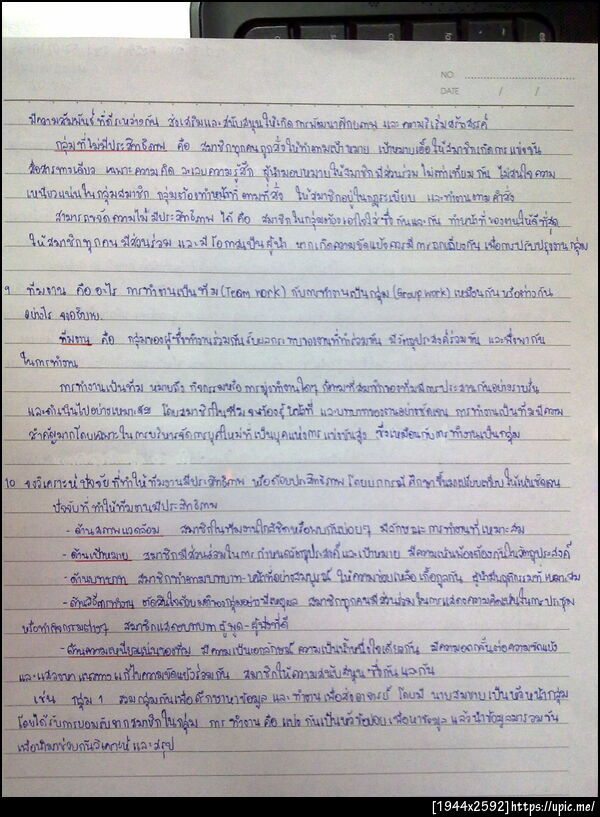 NO.
DATE / /
มีความสัมพันธ์ที่ดีระหว่างกัน ส่งเสริมและสนับสนุนให้เกิดการพัฒนาศักยภาพ และความริเริ่มสร้างสรรค์
กลุ่มที่ไม่มีประสิทธิภาพ คือ สมาชิกทุกคนถูกสั่งให้ทำตามเป้าหมาย เป้าหมายเอื้อให้สมาชิกเกิดการแข่งขัน
สื่อสารทางเดียว เฉพาะความคิด ละเลยความรู้สึก ผู้นำมอบหมายให้สมาชิกมีส่วนร่วมไม่เท่าเทียมกัน ไม่สนใจความ
เหนียวแน่นในกลุ่มสมาชิก กลุ่มต้องทำหน้าที่ตามที่สั่ง ให้สมาชิกอยู่ในกฎระเบียบ และทำงานตามคำสั่ง
สามารถขจัดความไม่มีประสิทธิภาพได้ คือ สมาชิกในกลุ่มต้องเอาใจใส่ซึ่งกันและกัน ทำหน้าที่ของตนให้ดีที่สุด
ให้สมาชิกทุกคนมีส่วนร่วม และมีโอกาสเป็นผู้นำ หากเกิดความขัดแย้งควรมีการถกเถียงกัน เพื่อการปรับปรุงงานกลุ่ม
9 ทีมงาน คืออะไร การทำงานเป็นทีม (Team work) กับการทำงานเป็นกลุ่ม (Group work) เหมือนกันหรือต่างกัน
อย่างไร จงอธิบาย
ทีมงาน คือ กลุ่มของผู้ซึ่งทำงานร่วมกันรับผลกระทบของงานที่ทำร่วมกัน มีวัตถุประสงค์ร่วมกัน และพึ่งพากัน
ในการทำงาน
การทำงานเป็นทีม หมายถึง กิจกรรมหรือการมุ่งทำงานใดๆ ก็ตามที่สมาชิกของทีมมีการประสานกันอย่างราบรื่น
และดำเนินไปอย่างเหมาะสม โดยสมาชิกในทีมจะต้องรู้หน้าที่ และบทบาทของตนอย่างชัดเจน การทำงานเป็นทีมมีความ
สำคัญมากโดยเฉพาะในการบริหารจัดการยุคใหม่ที่เป็นยุคแห่งการแข่งขันสูง ซึ่งเหมือนกับการทำงานเป็นกลุ่ม
10 จงวิเคราะห์ปัจจัยที่ทำให้ทีมงานมีประสิทธิภาพ หรือด้อยประสิทธิภาพ โดยยกกรณีศึกษาขึ้นมาเปรียบเทียบให้เห็นชัดเจน
ปัจจัยที่ทำให้ทีมงานมีประสิทธิภาพ
- ด้านสภาพแวดล้อม สมาชิกในทีมงานใกล้ชิดหรือพบกันบ่อยๆ มีลักษณะการทำงานที่เหมาะสม
- ด้านเป้าหมาย สมาชิกมีส่วนร่วมในการกำหนดวัตถุประสงค์และเป้าหมาย มีความเห็นพ้องต้องกันในวัตถุประสงค์
- ด้านบทบาท สมาชิกทำตามบทบาท-หน้าที่อย่างสมบูรณ์ ให้ความช่วยเหลือเกื้อกูลกัน ผู้นำมีพฤติกรรมที่เหมาะสม
- ด้านวิธีการทำงาน ตัดสินใจด้วยมติของกลุ่มอย่างมีเหตุผล สมาชิกทุกคนมีส่วนร่วมในการแสดงความคิดเห็นในการประชุม
หรือทำกิจกรรมต่างๆ สมาชิกแสดงบทบาทผู้พูด-ผู้ฟังที่ดี
- ด้านความเหนียวแน่นของทีม มีความเป็นเอกลักษณ์ ความเป็นน้ำหนึ่งใจเดียวกัน มีความอดกลั้นต่อความขัดแย้ง
และแสวงหาแนวทางแก้ไขความขัดแย้งร่วมกัน สมาชิกให้ความสนับสนุนซึ่งกันและกัน
เช่น กลุ่ม 1 รวมกลุ่มกันเพื่อศึกษาหาข้อมูล และทำงานเพื่อส่งอาจารย์ โดยมี นายสมชายเป็นหัวหน้ากลุ่ม
โดยได้รับการยอมรับจากสมาชิกในกลุ่ม การทำงาน คือ แบ่งกันเป็นหัวข้อย่อยเพื่อหาข้อมูล แล้วนำข้อมูลมารวมกัน
เพื่อนำมาช่วยกันวิเคราะห์ และสรุป
[1944x2592]https://upic.me/